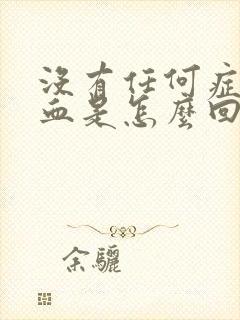 沒有任何症
血是怎麼回
余驪